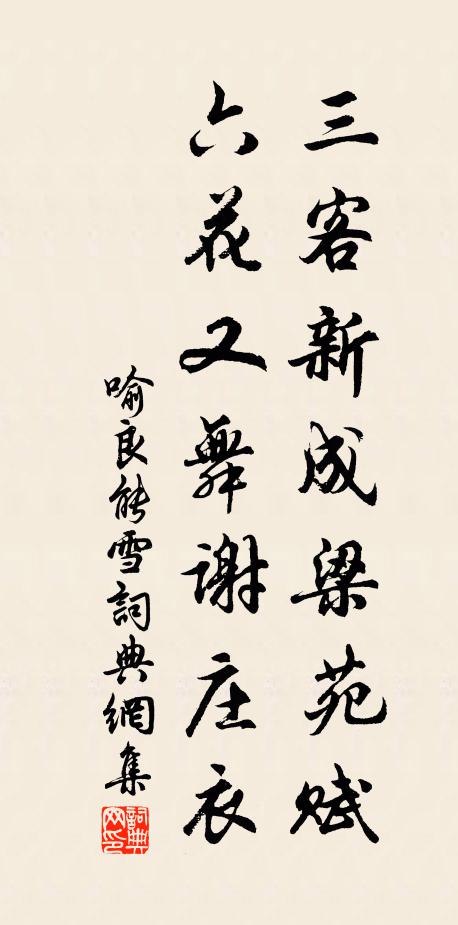 三客新成梁苑赋
六花又舞谢庄衣
喻良能雪詞典網集
詞典網印